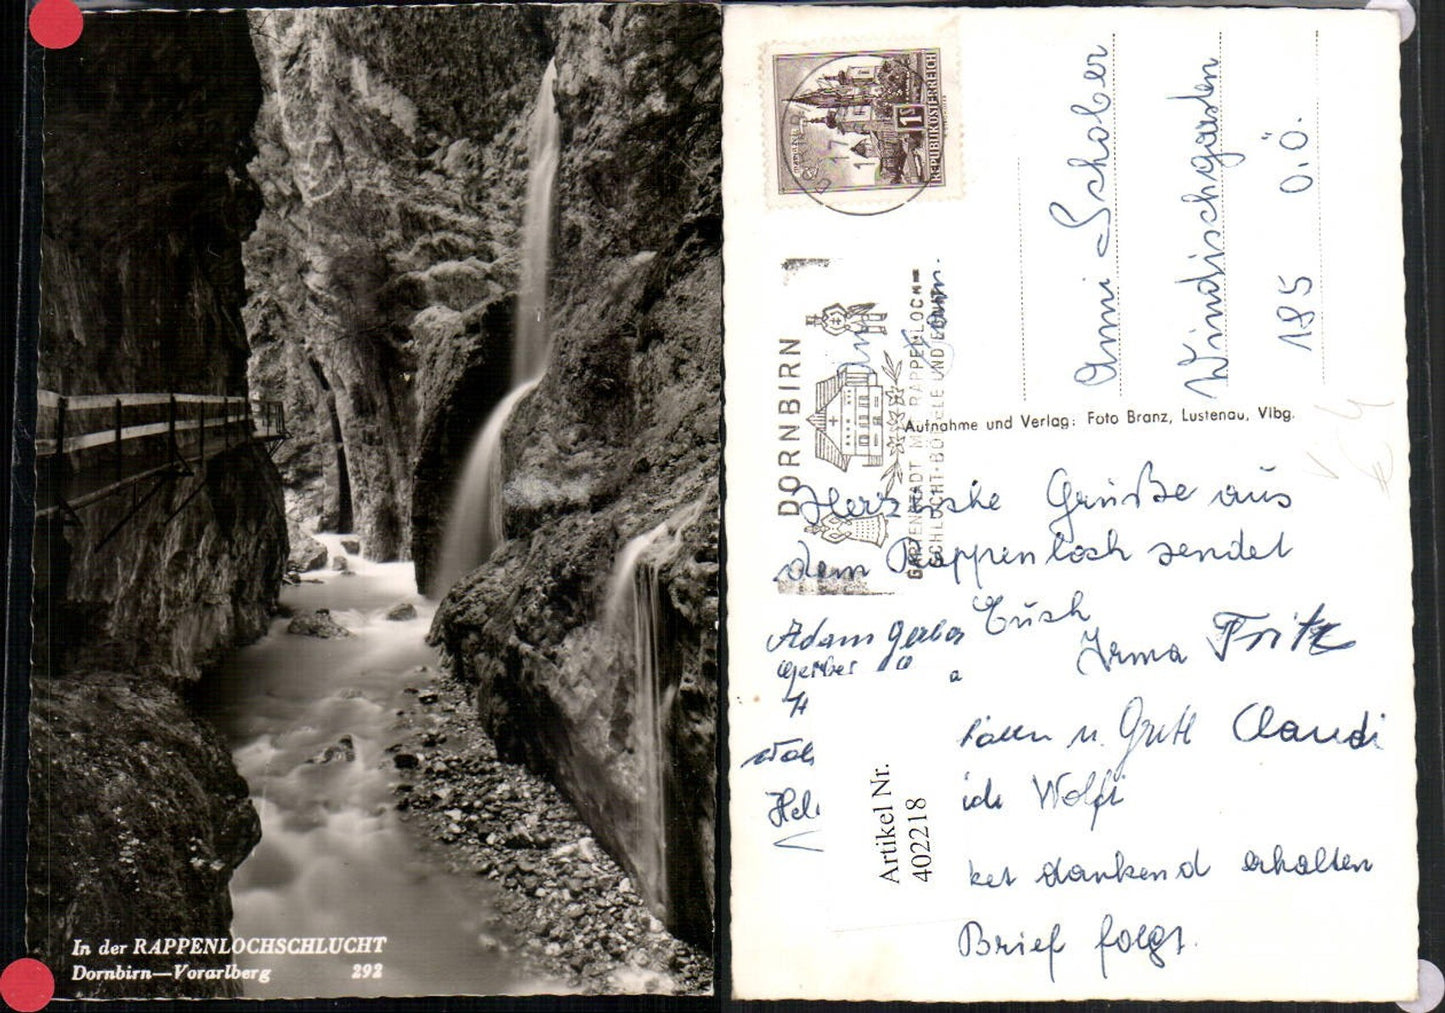 In der RAPPENLOCHSCHLUCHT
Dornbirn—Vorarlberg 292
REPUBLIK ÖSTERREICH
1S
DORNBIRN
GARTENSTADT MIT RAPPENLOCH-
SCHLUCHT
Anni Schober
Windischgarsten
185 O.Ö.
Aufnahme und Verlag: Foto Branz, Lustenau, Vlbg.
Herzliche Grüße aus
dem Rappenloch sendet
Euch
Irma Fritz
Adam Gerber
Gerber
u. Gretl Claudi
Wolfi
dankend erhalten
Brief folgt.
Artikel Nr.
402218